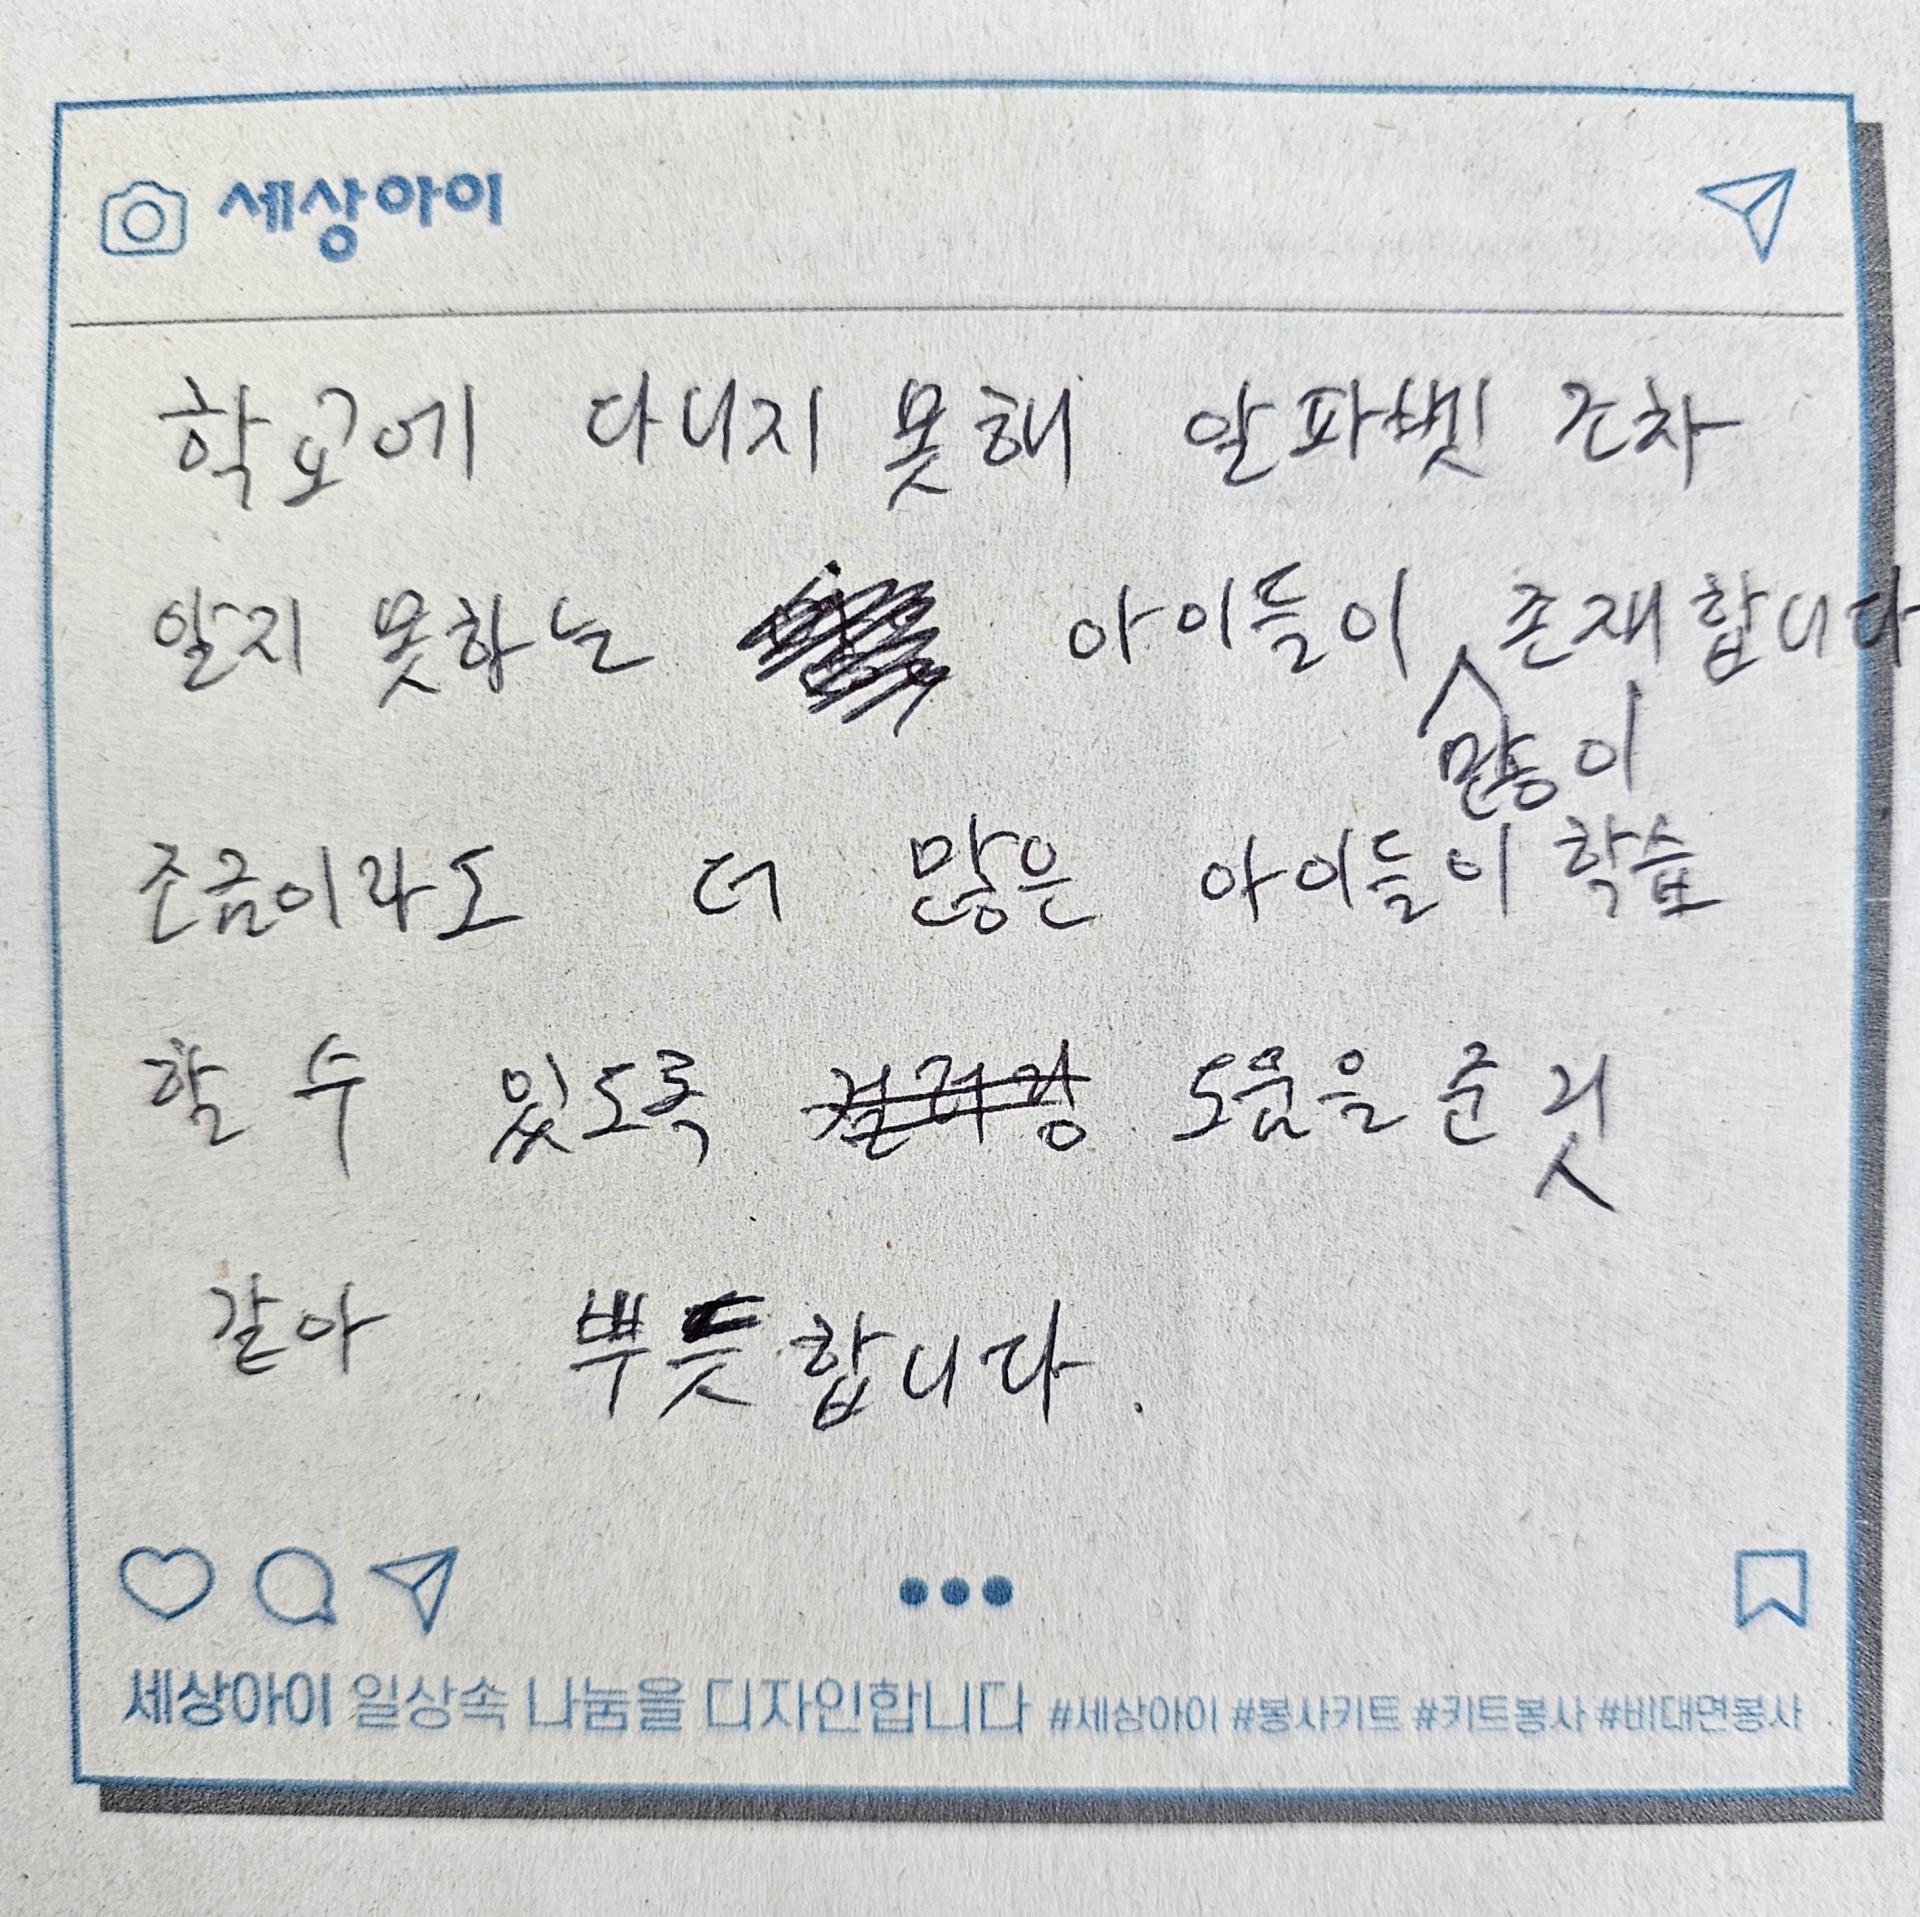 세상아이
학교에 다니지 못해 알파벳 조차
알지 못하는 아이들이 많이 존재합니다
조금이라도 더 많은 아이들이 학습
할 수 있도록 컬러링 도움을 준 것
같아 뿌듯합니다.
세상아이 일상속 나눔을 디자인합니다 #세상아이 #봉사키트 #키트봉사 #비대면봉사